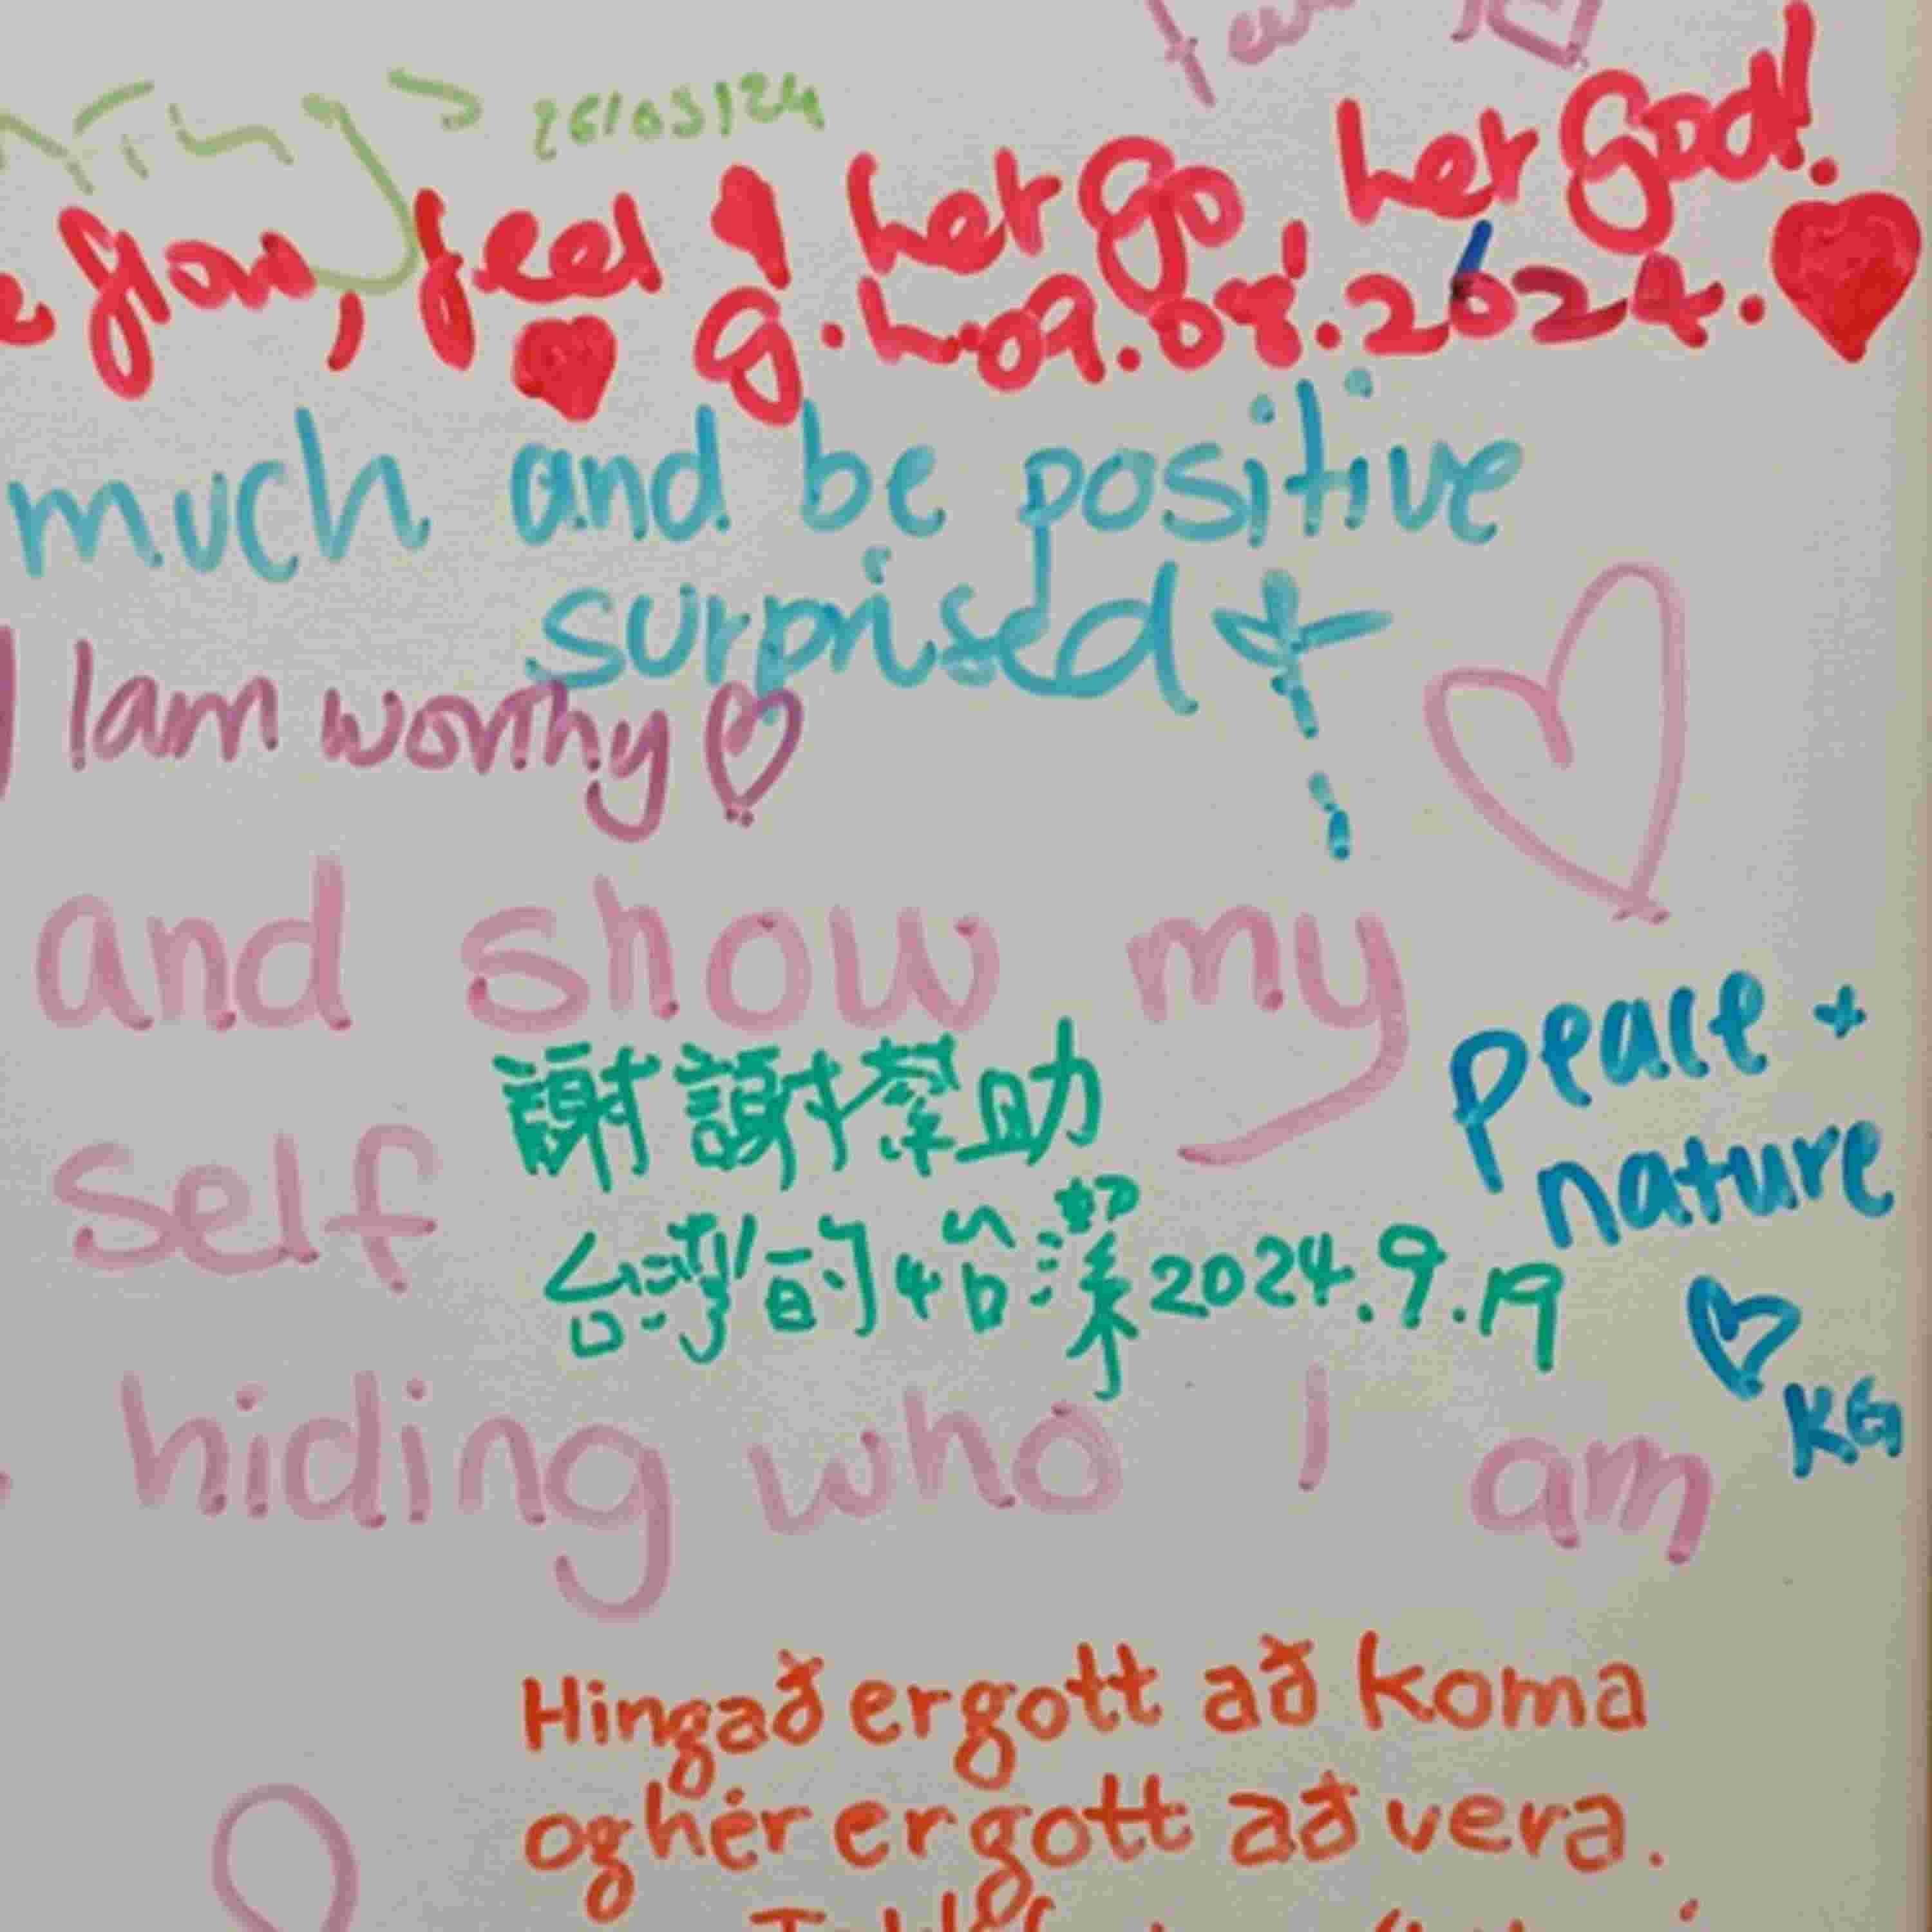 26/05/24
flow, feel & let go, let God!
g.h. 09.08.2024.
much and be positive
surprised
I am worthy
and show my
self
謝謝幫助
台灣的
2024.9.19
peace +
nature
KG
hiding who I am
Hingað er gott að koma
og hér er gott að vera.